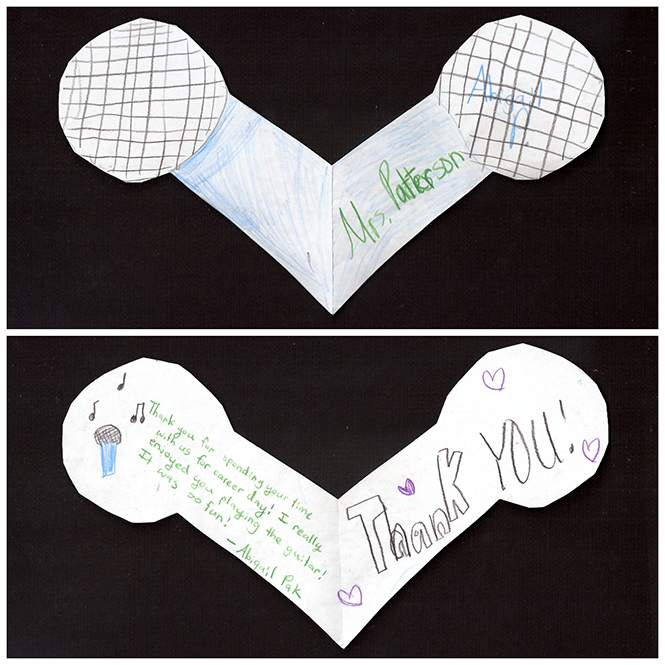 Mrs. Patterson
Abigail
P.
Thank you for spanding your time
with us for career day! I really
enjoyed you playing the guitar!
It was so fun!
-Abigail Pak
Thank YOU!